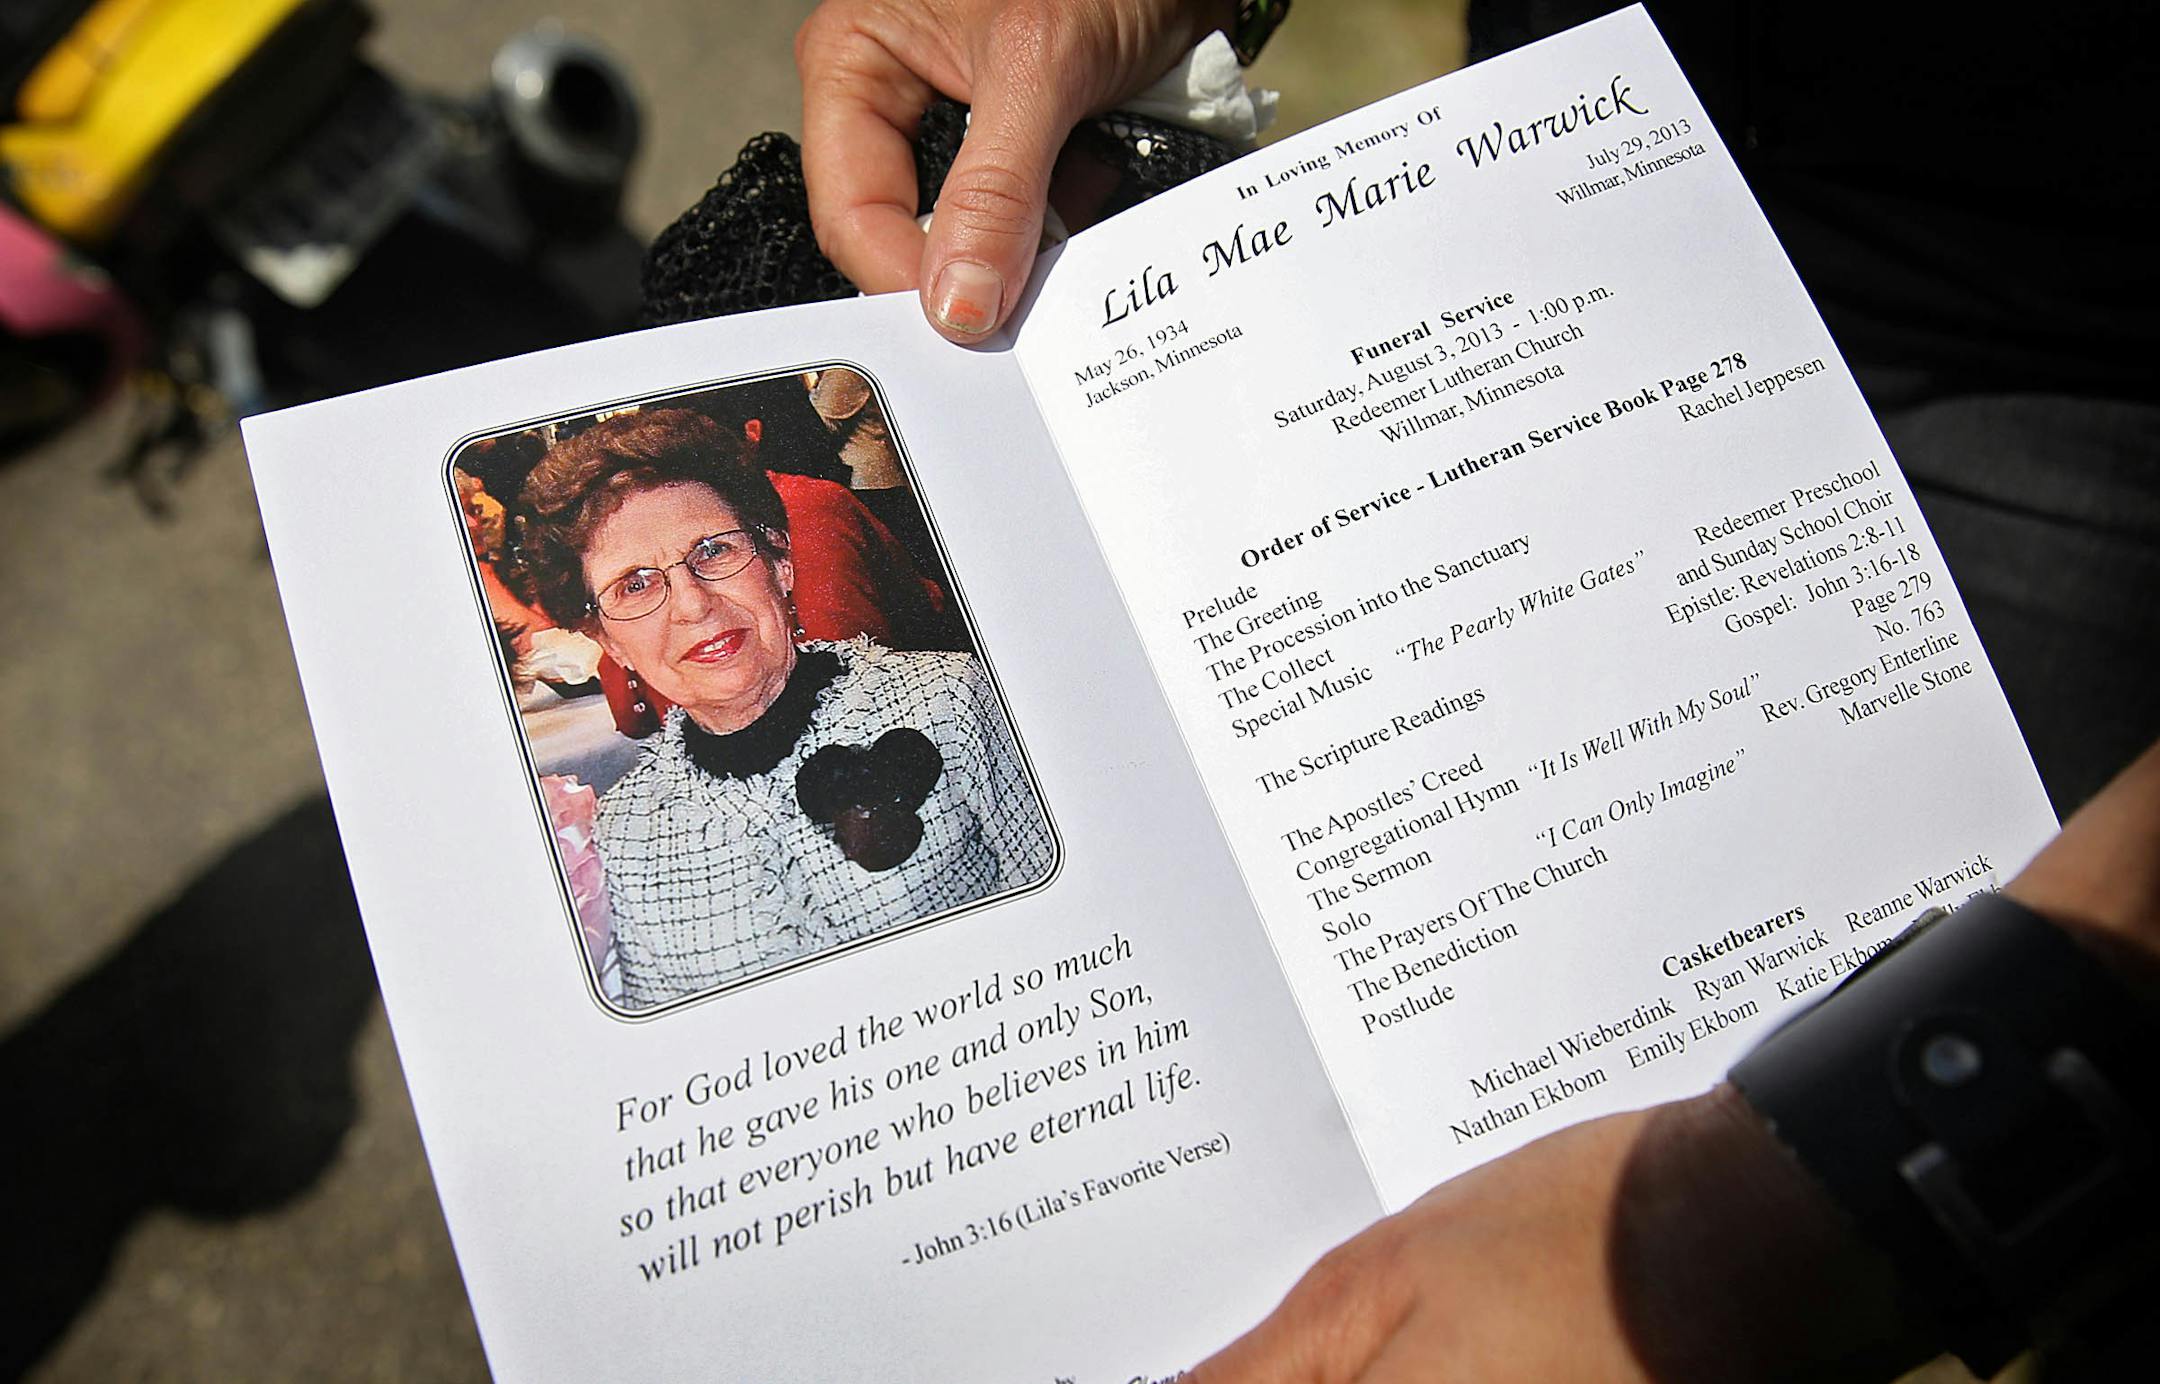 For God loved the world so much
that he gave his one and only Son,
so that everyone who believes in him
will not perish but have eternal life.
- John 3:16 (Lila's Favorite Verse)
by
In Loving Memory Of
Lila Mae Marie Warwick
May 26, 1934 July 29, 2013
Jackson, Minnesota Willmar, Minnesota
Funeral Service
Saturday, August 3, 2013 - 1:00 p.m.
Redeemer Lutheran Church
Willmar, Minnesota
Order of Service - Lutheran Service Book Page 278
Prelude Rachel Jeppesen
The Greeting
The Procession into the Sanctuary
The Collect
Special Music "The Pearly White Gates" Redeemer Preschool
and Sunday School Choir
The Scripture Readings Epistle: Revelations 2:8-11
Gospel: John 3:16-18
The Apostles' Creed Page 279
Congregational Hymn "It Is Well With My Soul" No. 763
The Sermon Rev. Gregory Enterline
Solo "I Can Only Imagine" Marvelle Stone
The Prayers Of The Church
The Benediction
Postlude
Casketbearers
Michael Wieberdink Ryan Warwick Reanne Warwick
Nathan Ekbom Emily Ekbom Katie Ekbom